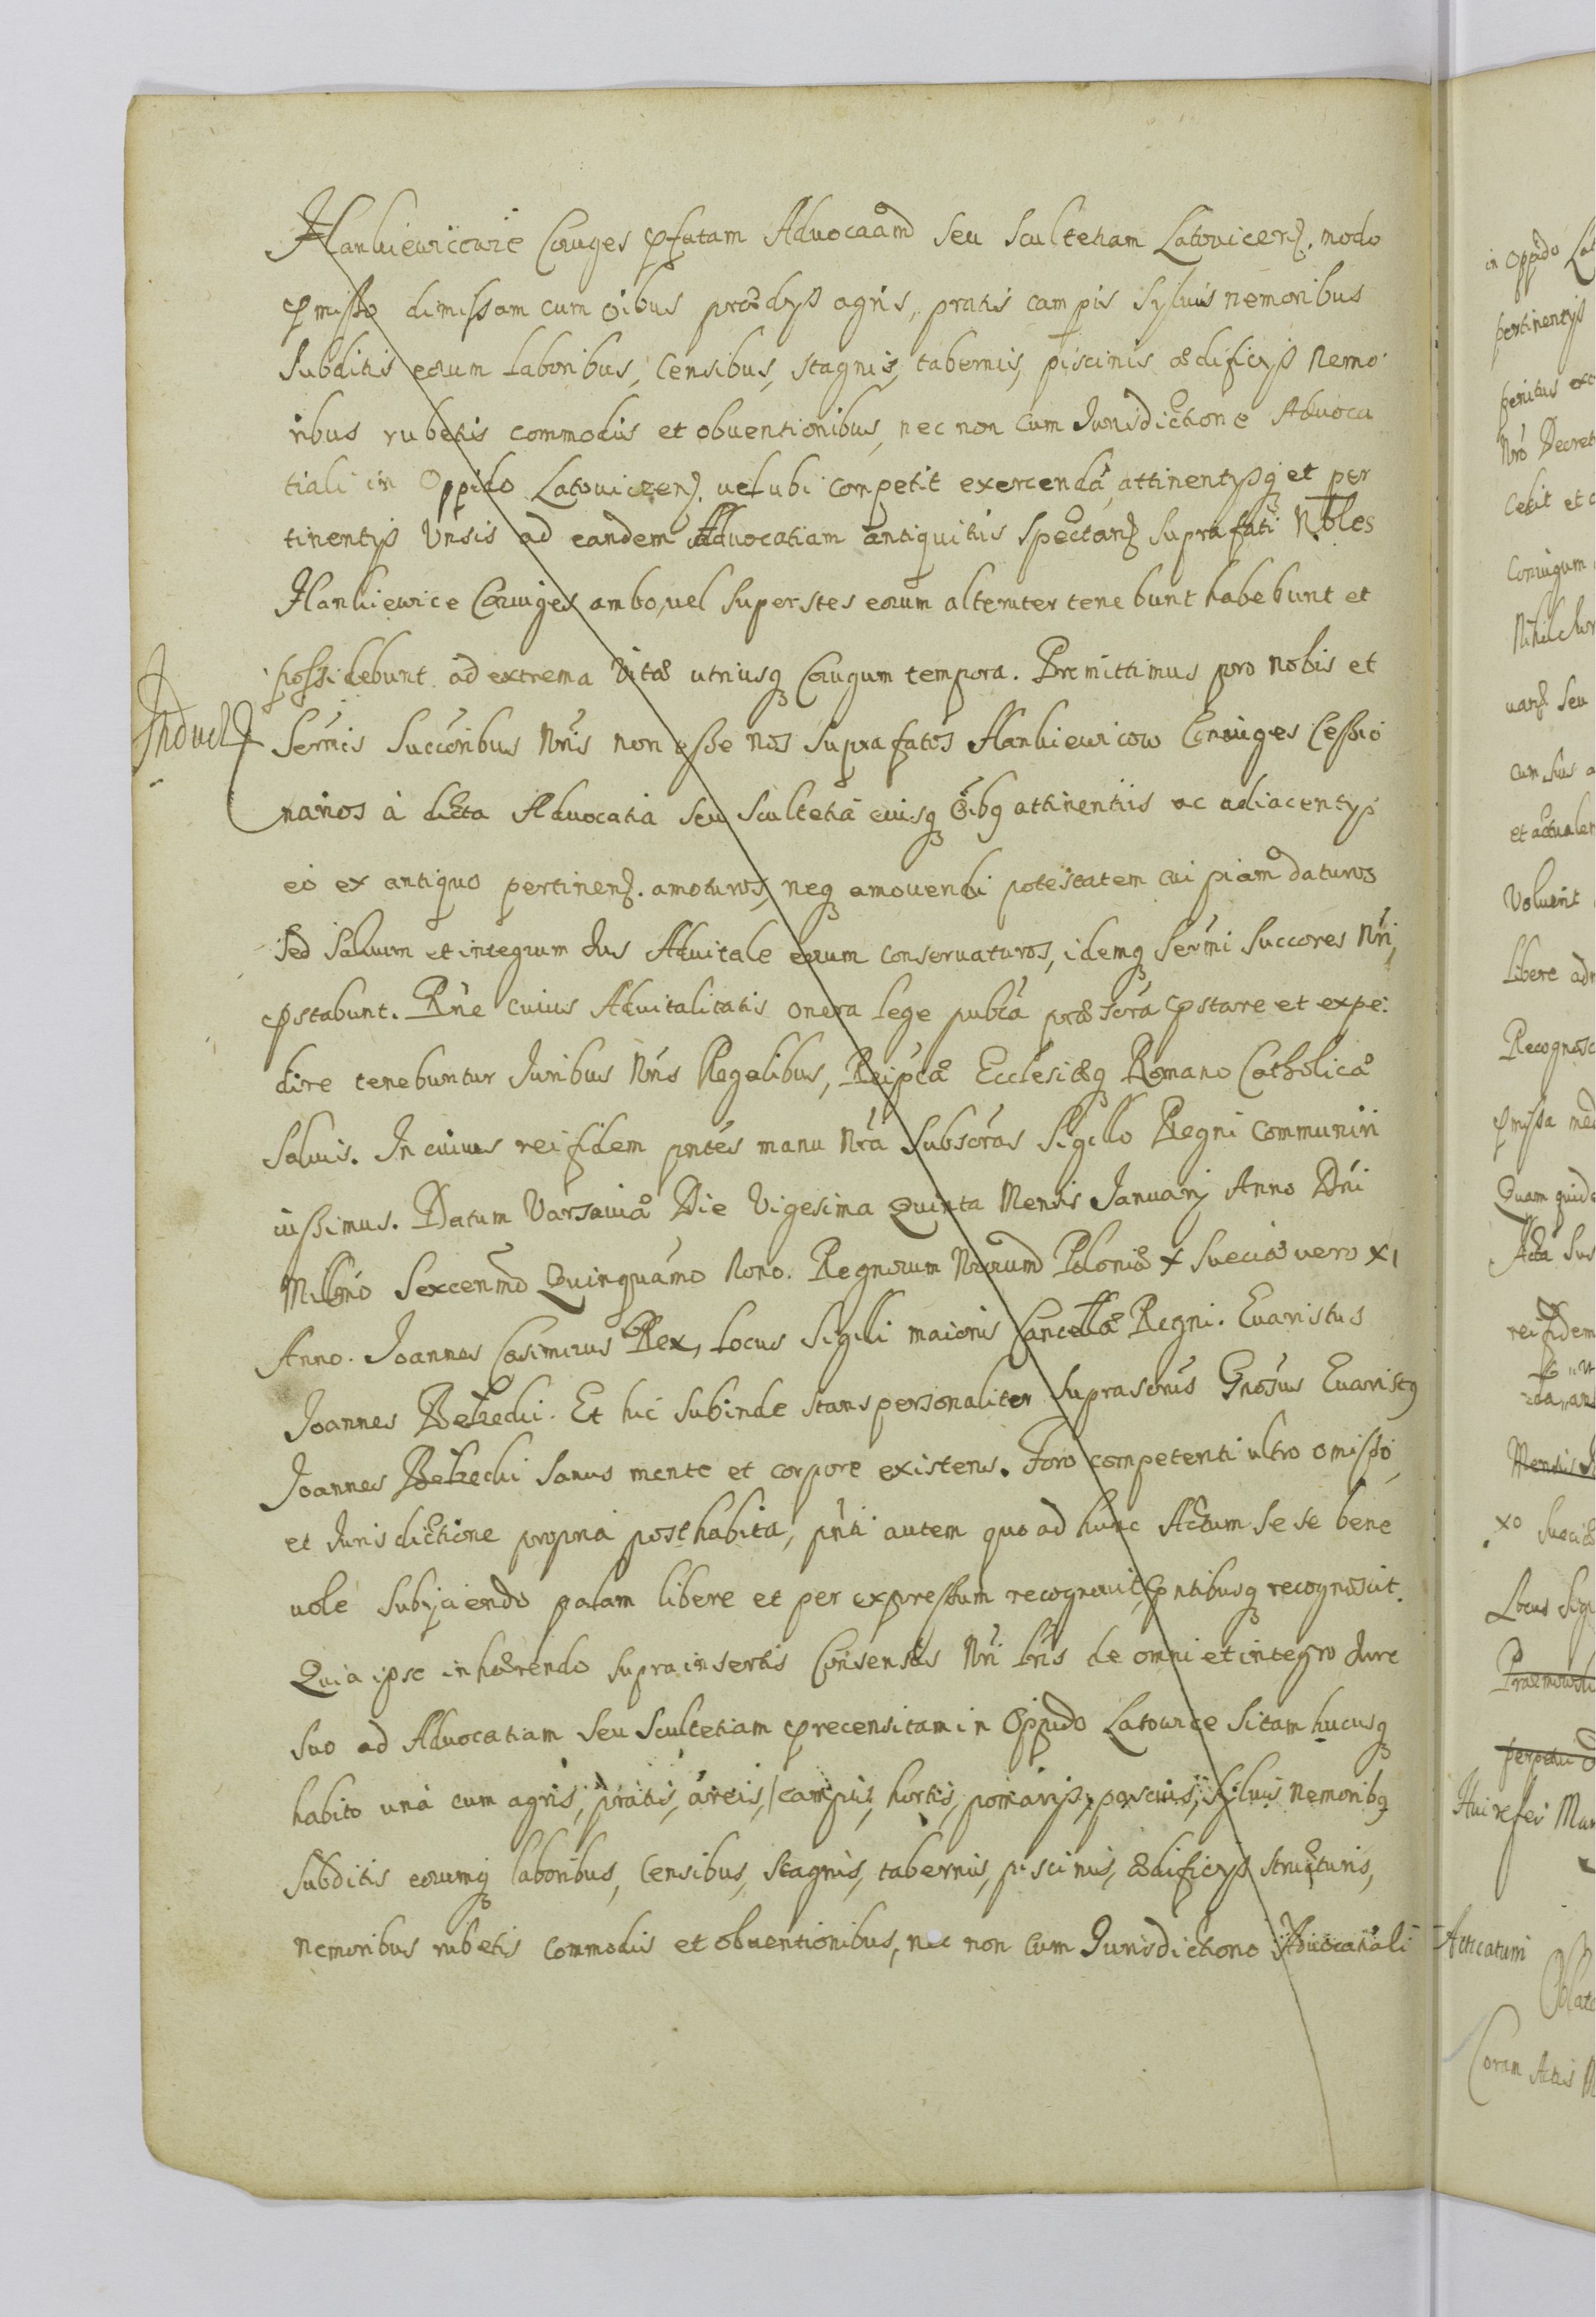 Hankiewicowie Coniuges pfatam Advocaam seu Scultetiam Latovicens. modo
pmisso dimissam cum oibus praedys agris, pratis campis Syluis nemoribus
Subditis eorum laboribus, Censibus, stagnis, tabernis, piscinis aedificys Nemo
ribus rubetis commodis et obuentionibus, nec non cum Jurisdictione Advoca
tiali in Oppido Latoviczens. vel ubi competit exercenda, attinentysq et per
tinentys Unsis ad eandem Advocatiam antiquitus Spectans Suprafati Nbles
Hankiewice Coniuges ambo, vel Superstes eorum alteruter tenebunt habebunt et
possidebunt ad extrema Vitae utriusq Coniugum tempora. Prmittimus pro nobis et
Inducta
Sermis Succoribus Nris non esse nos Suprafatos Hankiewicow Coniuges Cessio
narios à dicta Advocatia seu Scultetia eiusq oibq attinentiis ac adiacentys
eo ex antiquo pertinens. amoturos, neq amouendi potestatem cuipiam daturos
Sed Saluum et integrum Jus Aduitale eorum conservaturos, idemq Sermi Succores Nri,
pstabunt. Rne cuius Aduitalitatis onera lege pubca praescra pstare et expe
dire tenebuntur Juribus Nris Regalibus, Reipcae Ecclesiaeq Romano Catholicae
Saluis. In cuius rei fidem pntes manu Nra Subscras Sigillo Regni Communiri
iussimus. Datum Varsaviae Die Vigesima Quinta Mensis Januarij Anno Dni
Millmo Sexcenmo Quinquamo Nono. Regnorum Nrorum Poloniae X Sueciae vero XI
Anno. Joannes Casimirus Rex, Locus Sigilli maioris Cancellae Regni. Euaristus
Joannes Bełzecki. Et hic Subinde stans personaliter Suprascrius Gnosus Euaristq
Joannes Bełzecki Sanus mente et corpore existens. Foro competenti ultro omisso,
et Jurisdictione propria posthabita, pnti autem quo ad hunc Actum Se se bene
uole Subyciendo palam libere et per expressum recognouit, pntibusq recognoscit.
Quia ipse inhaerendo suprainsertis Consensus Nri Lris de omni et integro Jure
Suo ad Advocatiam Seu Scultetiam precensitam in Oppido Latowice Sitam hucusq
habito unà cum agris, pratis, areis, campis, hortis, pomarys, pascuis, Syluis Nemoribq
Subditis eorumq laboribus, Censibus, Stagnis, tabernis, piscinis, aedificys structuris,
nemoribus rubetis commodis et obuentionibus, nec non cum Jurisdictione Advocatiali
in Oppido
pertinentys
penitus
Nro Decret
Cedit et
Coniugum
Nihil
Seu
cum Suis
et actualem
Voluerit
Libere
Recognosc
pmissa
Quam quide
Acta Sus
rei fidem
Mensis
XO
Locus Sigi
perpetu
Actis
Acticatum
Oblat
Coram Actis